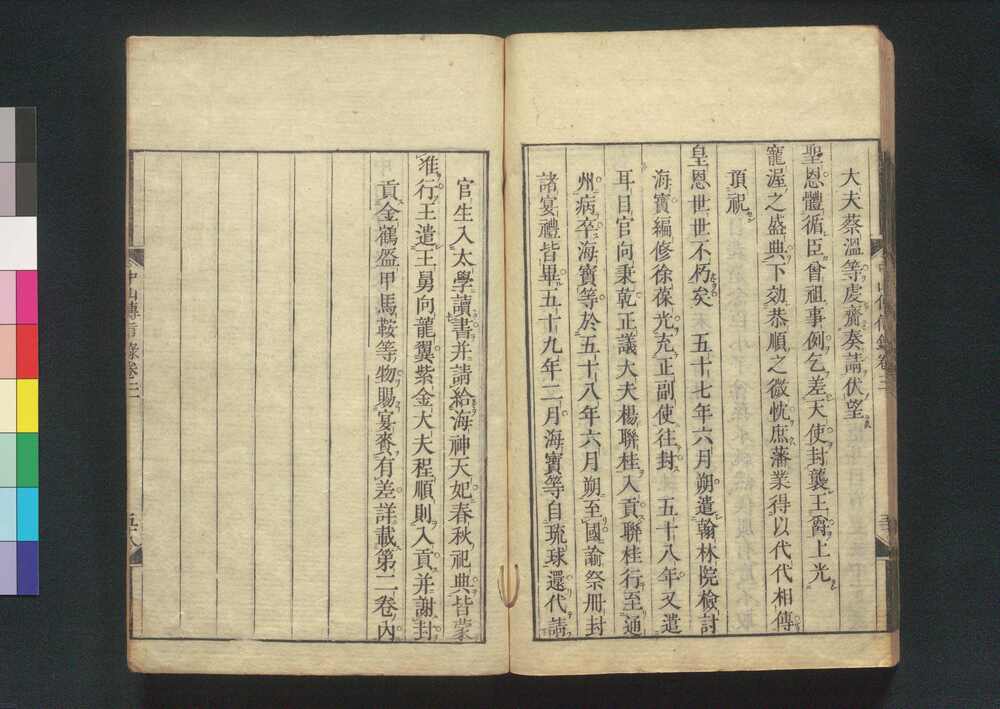 大夫蔡溫等虔齋奏請伏望
聖恩體循臣曾祖事例乞差天使封襲王爵上光
寵渥之盛典下効恭順之微忱庶藩業得以代代相傳
頂祝
皇恩世世不朽矣 五十七年六月朔遣翰林院檢討
海寶編修徐葆光充正副使往封 五十八年又遣
耳目官向秉乾正議大夫楊聯桂入貢聯桂行至通
州病卒海寶等於五十八年六月朔至國諭祭冊封
諸宴禮皆畢五十九年二月海寶等自琉球還代請
官生入太學讀書并請給海神天妃春秋祀典皆蒙
准行王遣王舅向龍翼紫金大夫程順則入貢并謝封
貢金鶴盔甲馬鞍等物賜宴賚有差詳載第二卷內
中山傳信錄卷三
中山傳信錄卷三
五八